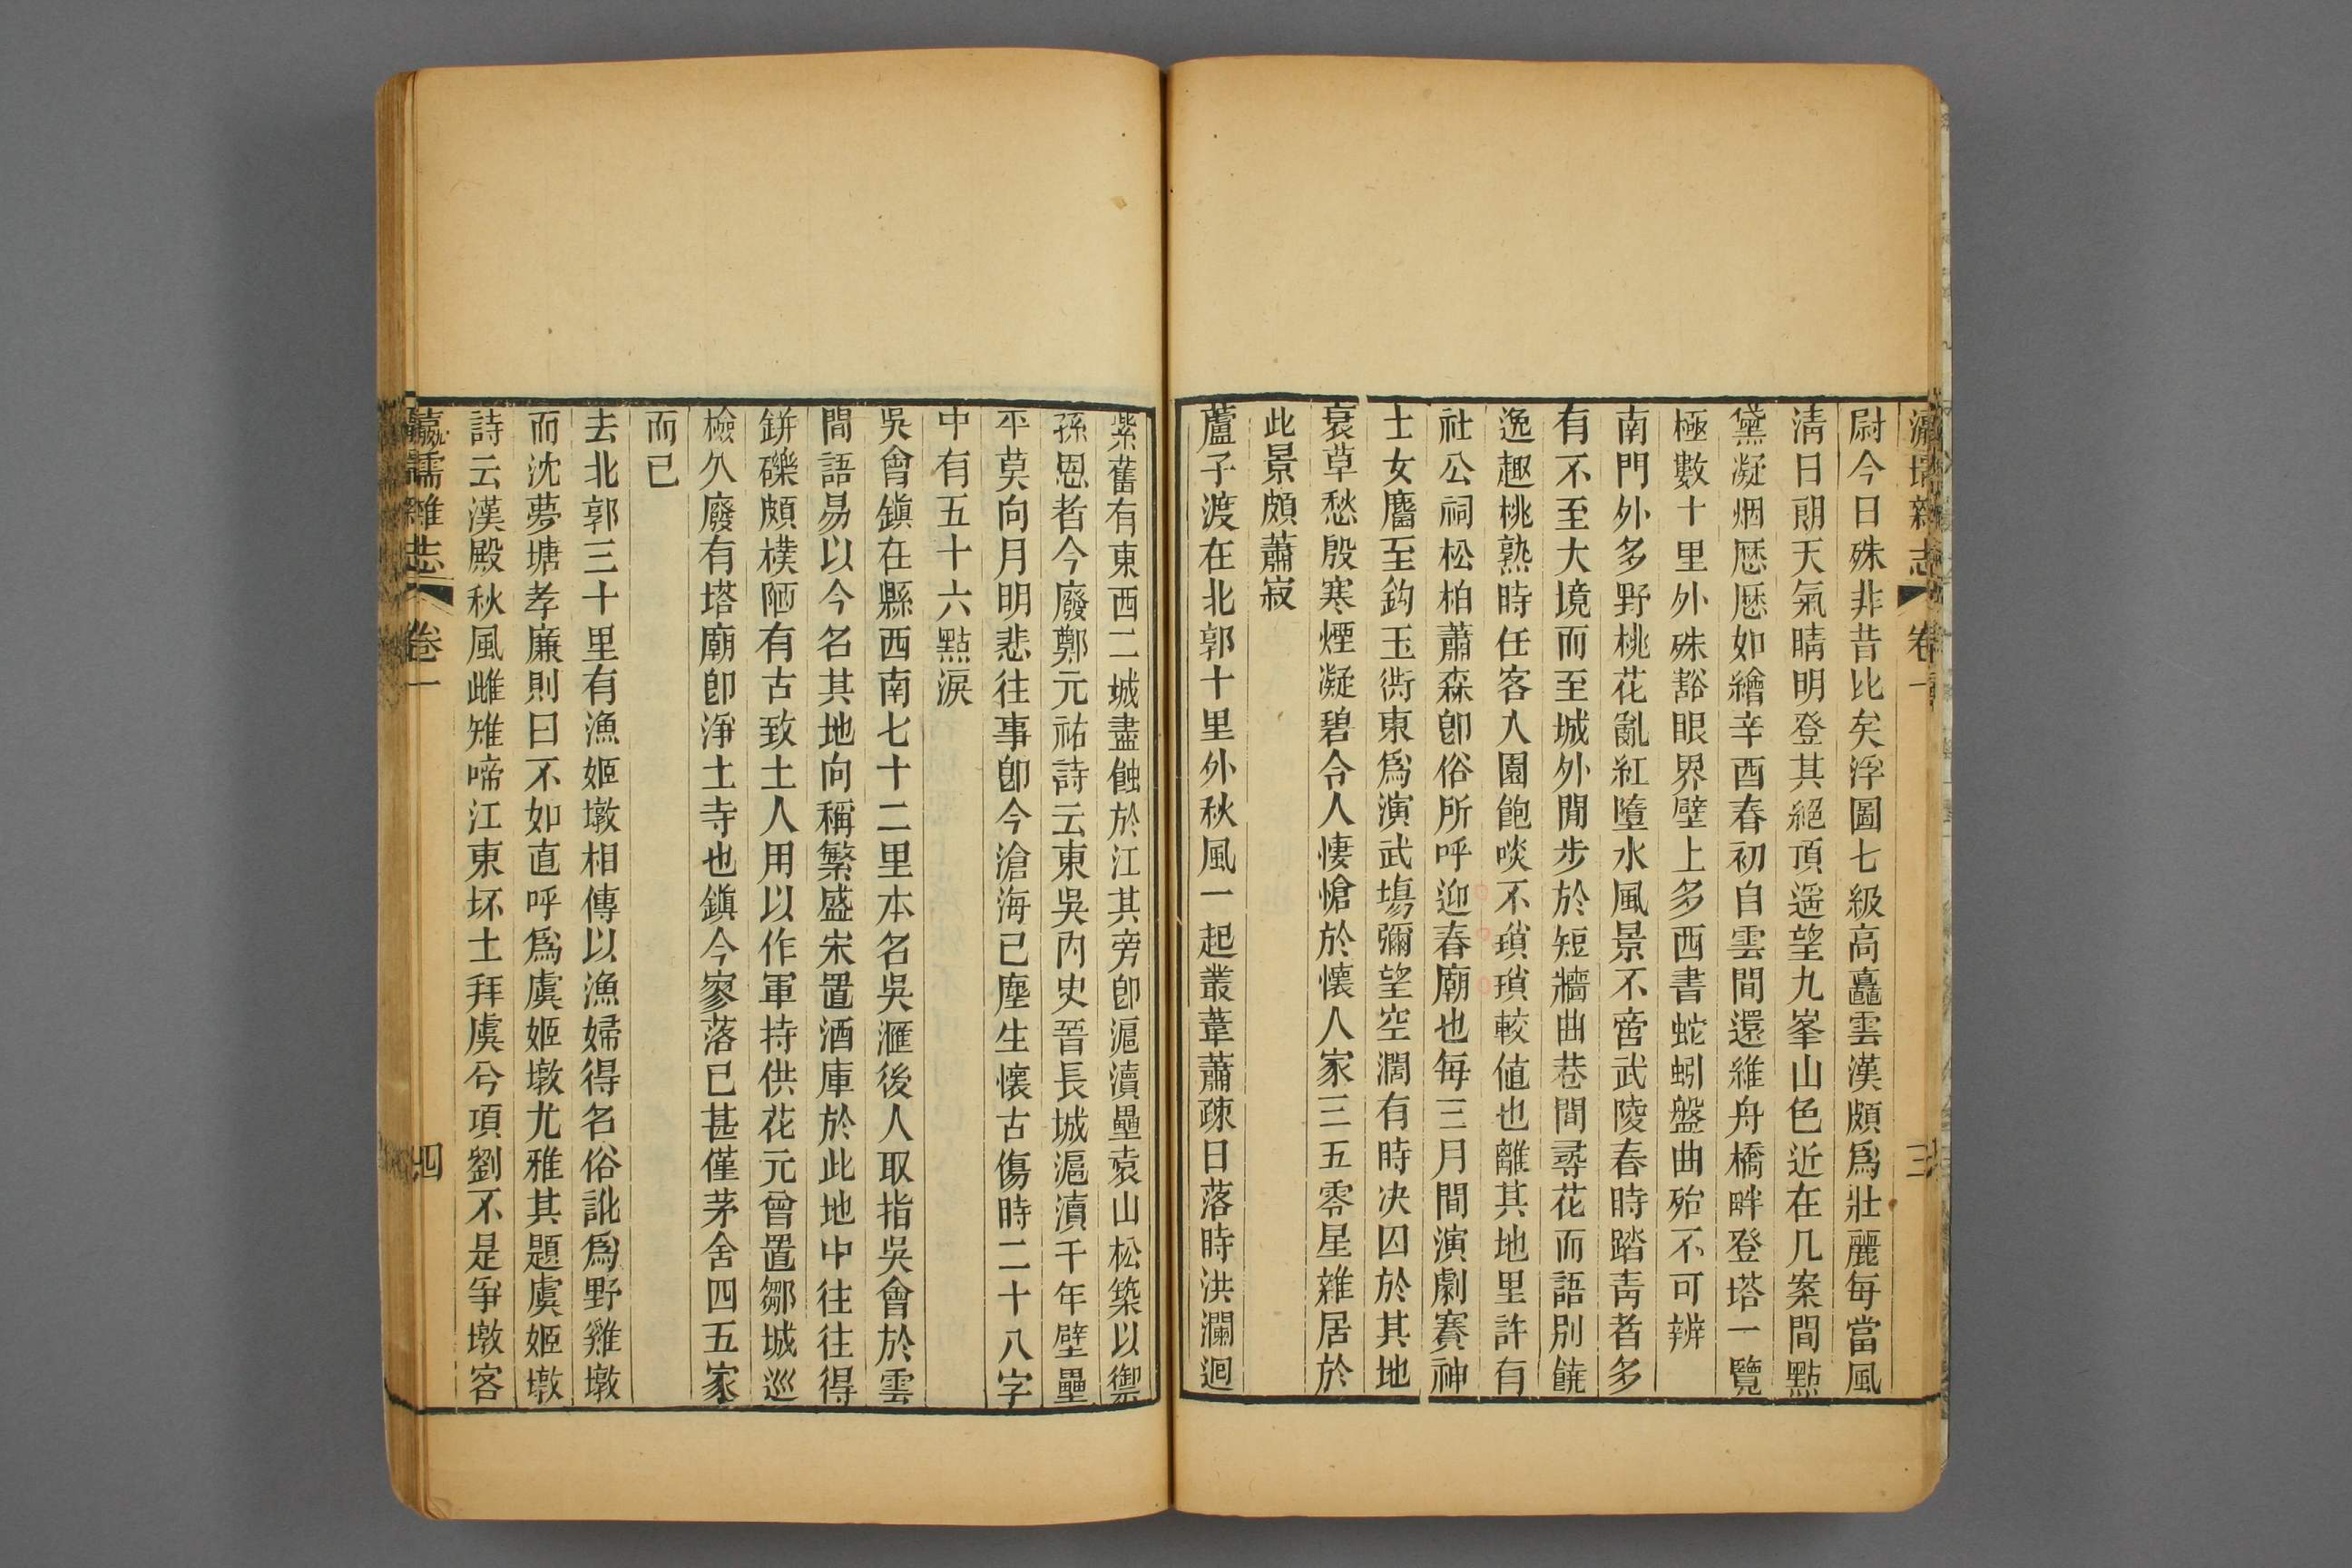 瀛壖雜志 卷一 三
尉今日殊非昔比矣浮圖七級高矗雲漢頗爲壯麗每當風
淸日朗天氣晴明登其絕頂遥望九峯山色近在几案間點
黛凝烟厯厯如繪辛酉春初自雲間還維舟橋畔登塔一覽
極數十里外殊豁眼界壁上多西書蛇蚓盤曲殆不可辨
南門外多野桃花亂紅墮水風景不啻武陵春時踏靑者多
有不至大境而至城外閒步於短牆曲巷間尋花而語別饒
逸趣桃熟時任客入園飽啖不瑣瑣較値也離其地里許有
社公祠松柏蕭森卽俗所呼迎春廟也每三月間演劇賽神
士女麕至鈎玉衖東爲演武塲彌望空濶有時决囚於其地
衰草愁殷寒煙凝碧令人悽愴於懷人家三五零星雜居於
此景頗蕭寂
蘆子渡在北郭十里外秋風一起叢葦蕭疎日落時洪瀾迴
縈舊有東西二城盡蝕於江其旁卽滬瀆壘袁山松築以禦
孫恩者今廢鄭元祐詩云東吳內史晉長城滬瀆千年壁壘
平莫向月明悲往事卽今滄海已塵生懷古傷時二十八字
中有五十六點淚
吳會鎭在縣西南七十二里本名吳滙後人取指吳會於雲
間語易以今名其地向稱繁盛宋置酒庫於此地中往往得
缾礫頗樸陋有古致土人用以作軍持供花元曾置鄒城巡
檢久廢有塔廟卽淨土寺也鎭今寥落已甚僅茅舍四五家
而已
去北郭三十里有漁姬墩相傳以漁婦得名俗訛爲野雞墩
而沈夢塘孝廉則曰不如直呼爲虞姬墩尤雅其題虞姬墩
詩云漢殿秋風雌雉啼江東坏土拜虞兮項劉不是爭墩客
瀛壖雜志 卷一 四